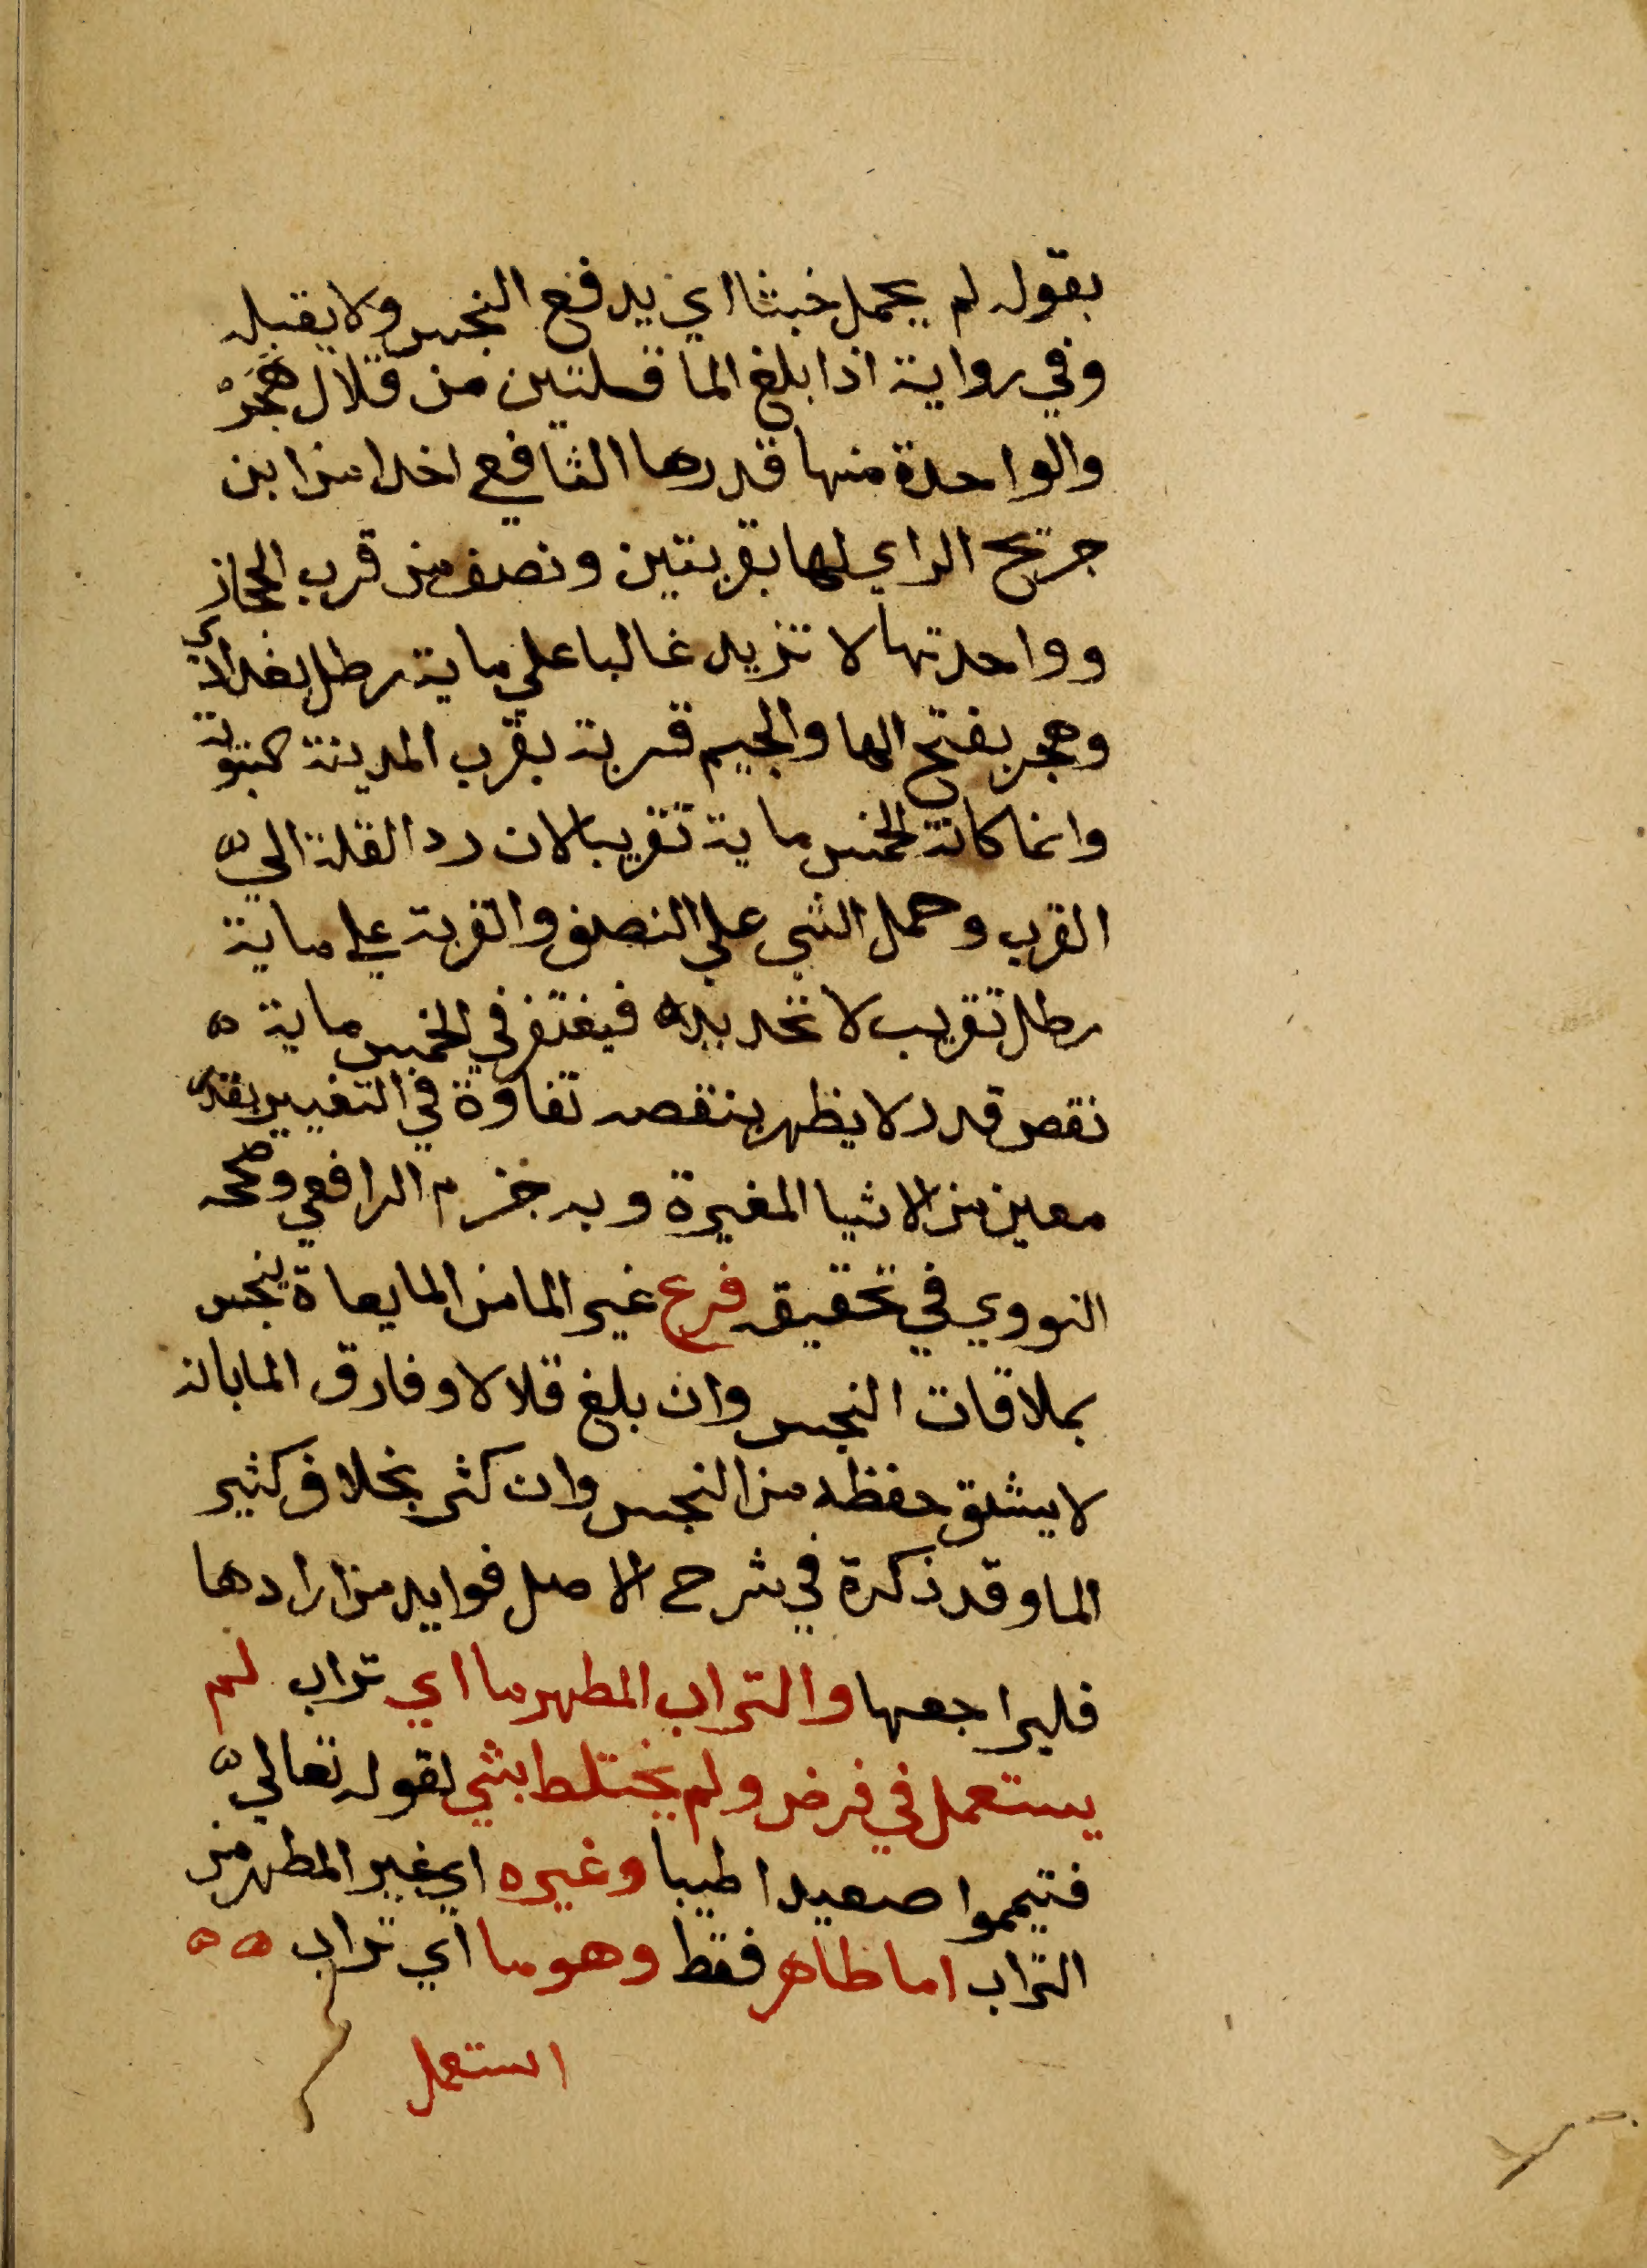 بقوله لم يحمل خبثا اي يدفع النجس ولا يقبله
وفي رواية اذا بلغ الما قلتين من قلال هَجَرْ
والواحدة منها قدرها الشافعي اخدا من ابن
جريج الراي لها بقربتين ونصف من قرب الحجاز
وواحدتها لا تزيد غالبا علي ماية رطل بغدادي
وهجر بفتح الها والجيم قرية بقرب المدينة النبوية
وانما كانة الخمس ماية تقريبا لان رد القلة الي
القرب وحمل الشي علي النصف والقربة علي ماية
رطل تقريب لا تحديد ه فيغتفر في الخمس ماية ه
نقص قدر لا يظهر بنقصه تفاوة في التغيير بقدر
معين من الاشيا المغيرة وبه جزم الرافعي وصححه
النووي في تحقيقه فرع غير الما من المايعاة ينجس
بملاقات النجس وان بلغ قلالا وفارق الما بانه
لا يشق حفظه من النجس وان كثر بخلاف كثير
الما وقد ذكرة في شرح الاصل فوايد من ارادها
فليراجعها والتراب المطهر ما اي تراب لم
يستعمل في فرض ولم يختلط بشي لقوله تعالي
فتيمموا صعيدا طيبا وغيره اي غير المطهر من
التراب اما طاهر فقط وهو ما اي تراب ه ه
استعمل